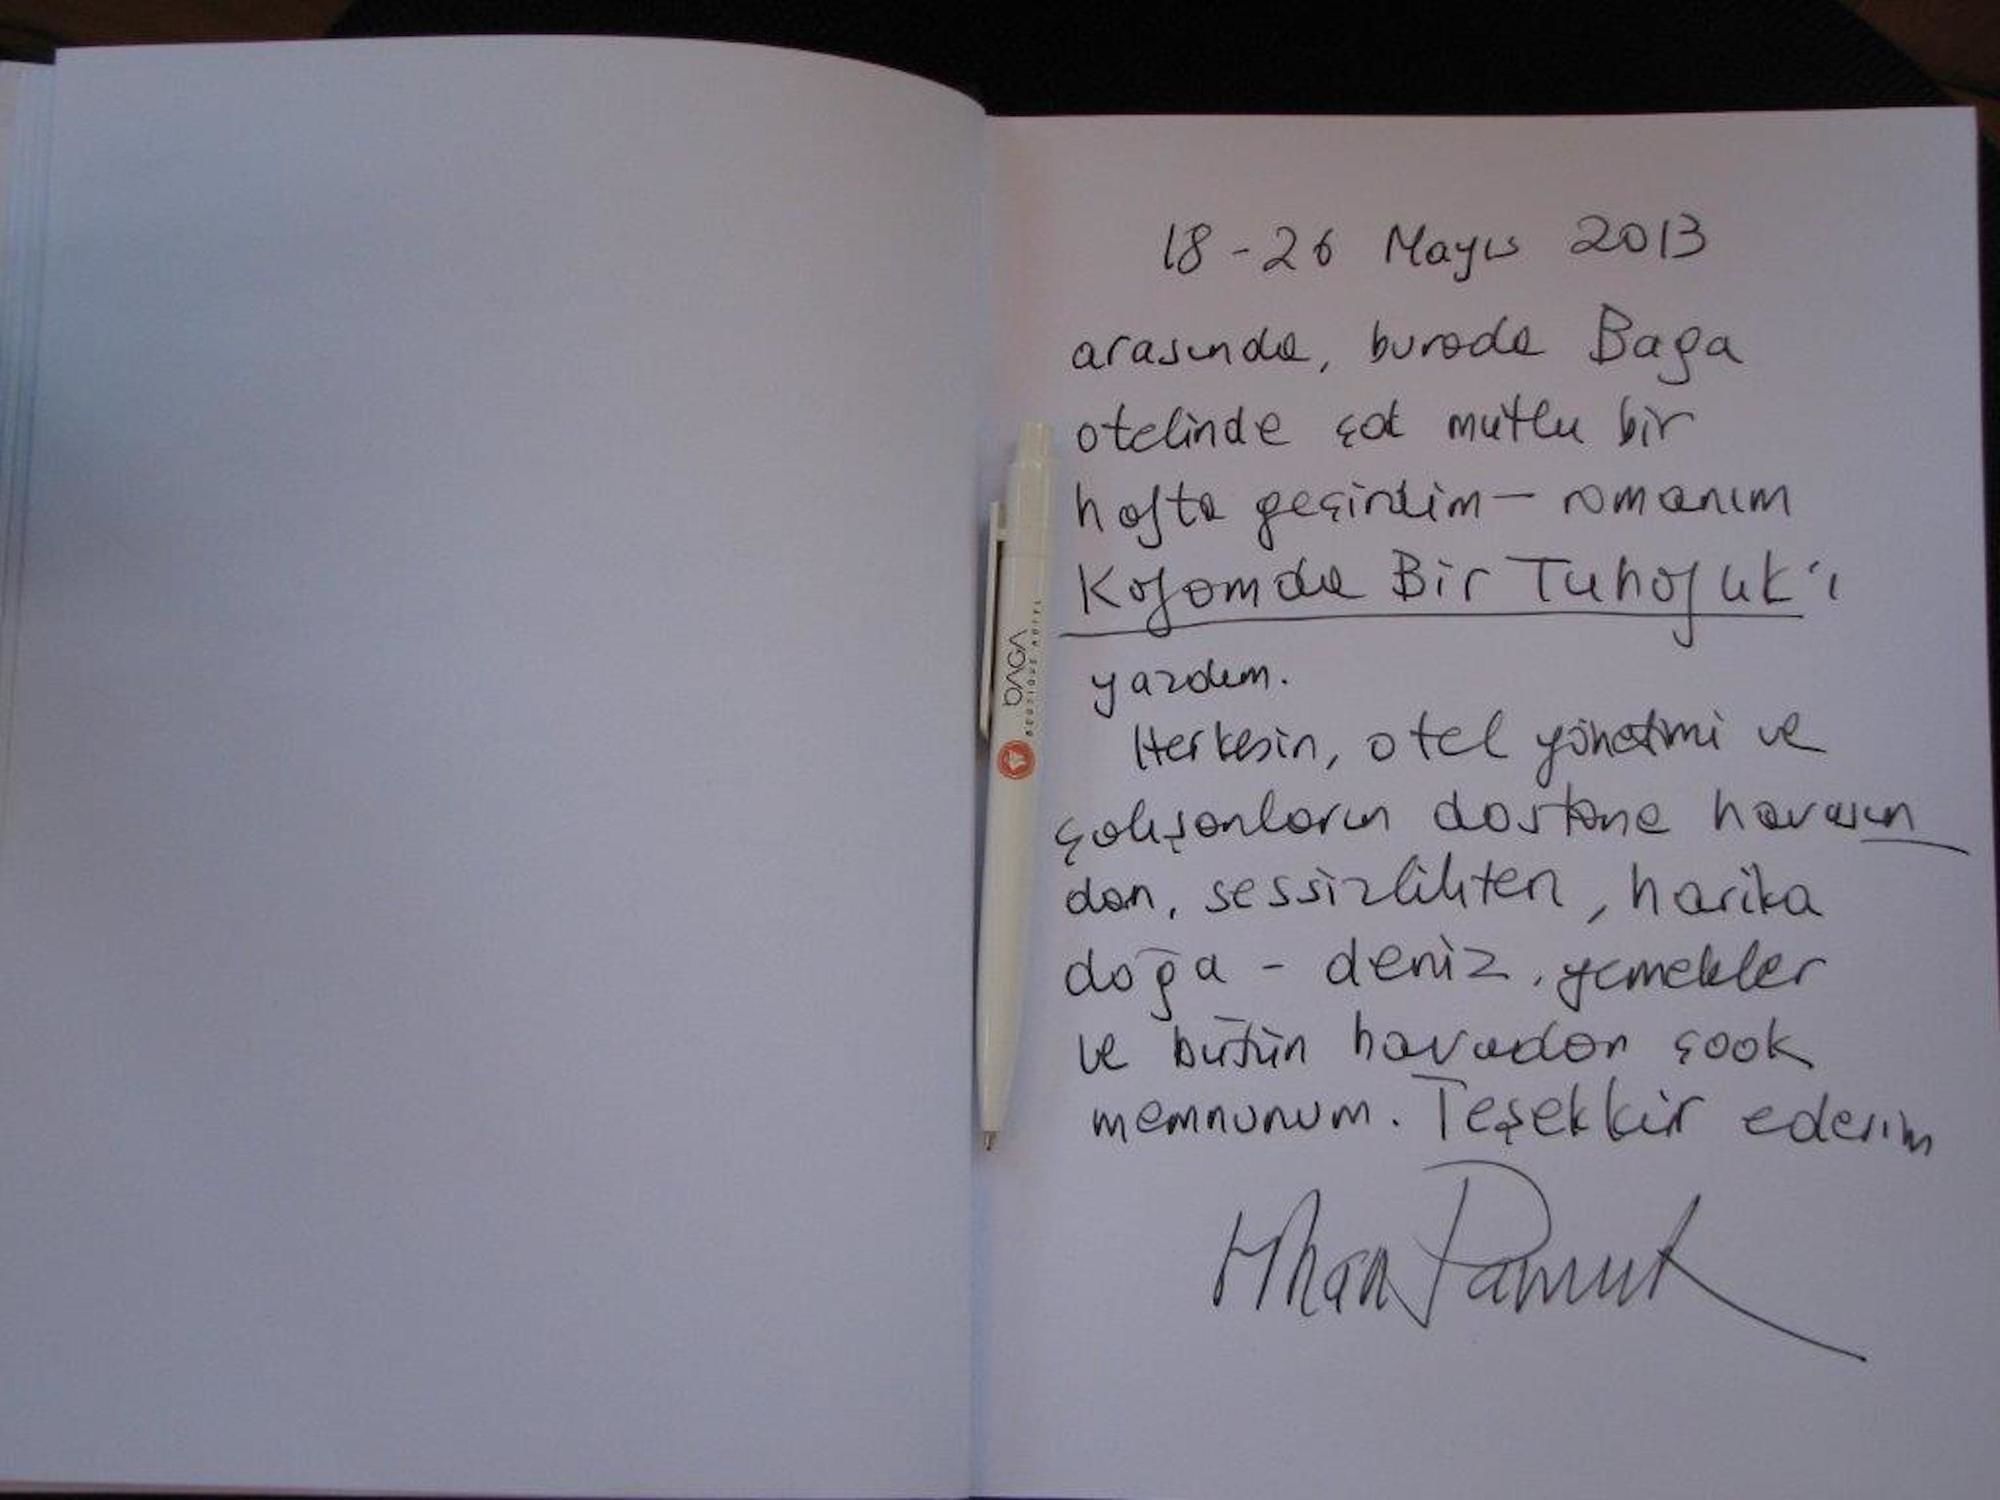 18 - 26 Mayıs 2013
arasında, burada Baga
otelinde çok mutlu bir
hafta geçirdim — romanım
Kafamda Bir Tuhaflık'ı
yazdım.
Herkesin, otel yönetimi ve
çalışanların dostane havasın
dan, sessizlikten, harika
doğa - deniz, yemekler
ve bütün havadan çook
memnunum. Teşekkür ederim
Orhan Pamuk
BAGA
BOUTIQUE HOTEL